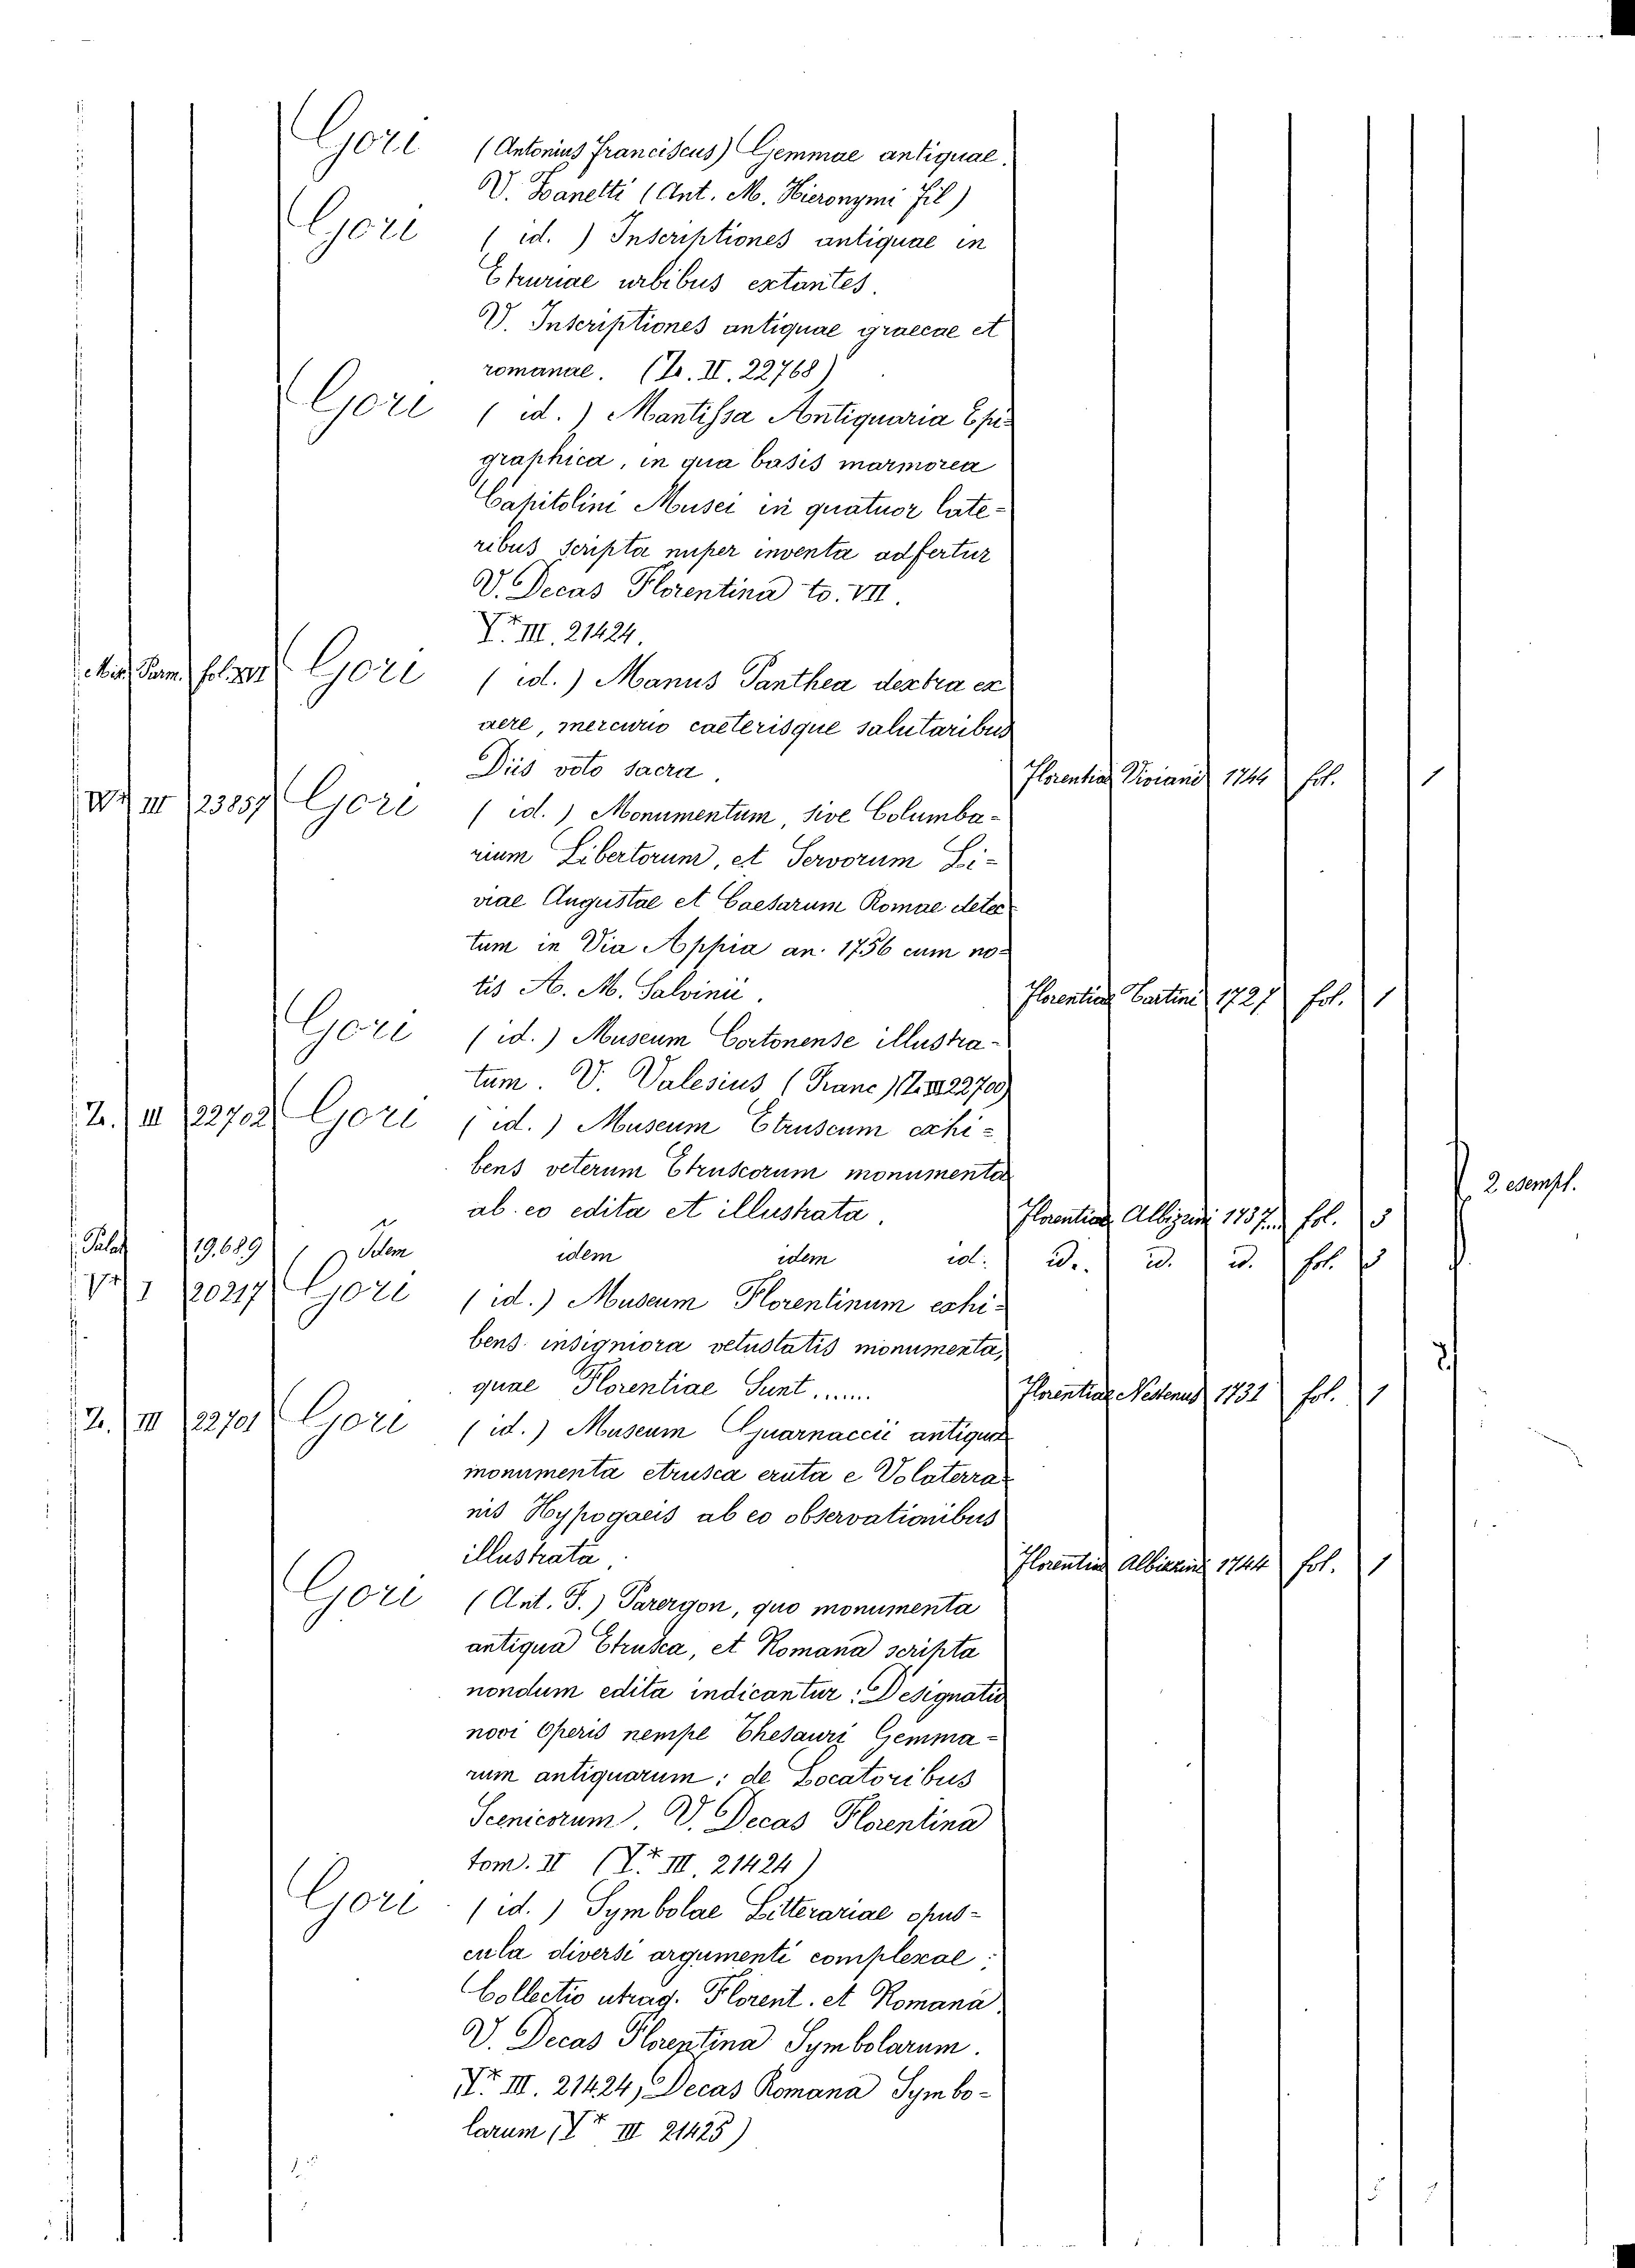 Gori (Antonius Franciscus) Gemmae antiquae.
V. Zanetti (Ant. M. Hieronymi Fil)
Gori (id.) Inscriptiones antiquae in
Etruriae urbibus extantes.
V. Inscriptiones antiquae graecae et
romanae. (Z. II. 22768)
Gori (id.) Mantissa Antiquaria Epi-
graphica, in qua basis marmorea
Capitolini Musei in quatuor late-
ribus scripta nuper inventa adfertur
V. Decas Florentina to. VII.
Y* III. 21424.
fol. Gori (id.) Manus Panthea dextra ex
aere, mercurio caeterisque salutaribus
Diis voto sacra. Florentiae Viviani 1744 fol. 1
III 23857 Gori (id.) Monumentum, sive Columba-
rium Libertorum, et Servorum Li-
viae Augustae et Caesarum Romae detec
tum in Via Appia an. 1756 cum no-
tis A. M. Salvinii. Florentiae Tartini 1727 fol. 1
Gori (id.) Museum Cortonense illustra-
tum. V. Valesius (Franc) (Z. III 22700)
Z. III 22702 Gori (id.) Museum Etruscum exhi-
bens veterum Etruscorum monumenta
ab eo edita et illustrata. Florentiae Albizini 1737... fol. 3 2 esempl.
Palat 19.689 Idem idem idem id. id. id. id. fol. 3
1 20217 Gori (id.) Museum Florentinum exhi-
bens insigniora vetustatis monumenta,
quae Florentiae Sunt...... Florentiae Nestenus 1731 fol. 1 2
Z. III 22701 Gori (id.) Museum Guarnaccii antiqua
monumenta etrusca eruta e Volaterra-
nis Hypogaeis ab eo observationibus
illustrata. Florentiae Albizzini 1744 fol. 1
Gori (Ant. F.) Parergon, quo monumenta
antiqua Etrusca, et Romana scripta
nondum edita indicantur: Designatio
novi Operis nempe Thesauri Gemma-
rum antiquarum: de Locatoribus
Scenicorum. V. Decas Florentina
tom. II (Y* III. 21424)
Gori (id.) Symbolae Litterariae opus-
cula diversi argumenti complexae:
Collectio utraq. Florent. et Romana.
V. Decas Florentina Symbolarum.
Y* III. 21424, Decas Romana Symbo-
larum (Y* III 21425)